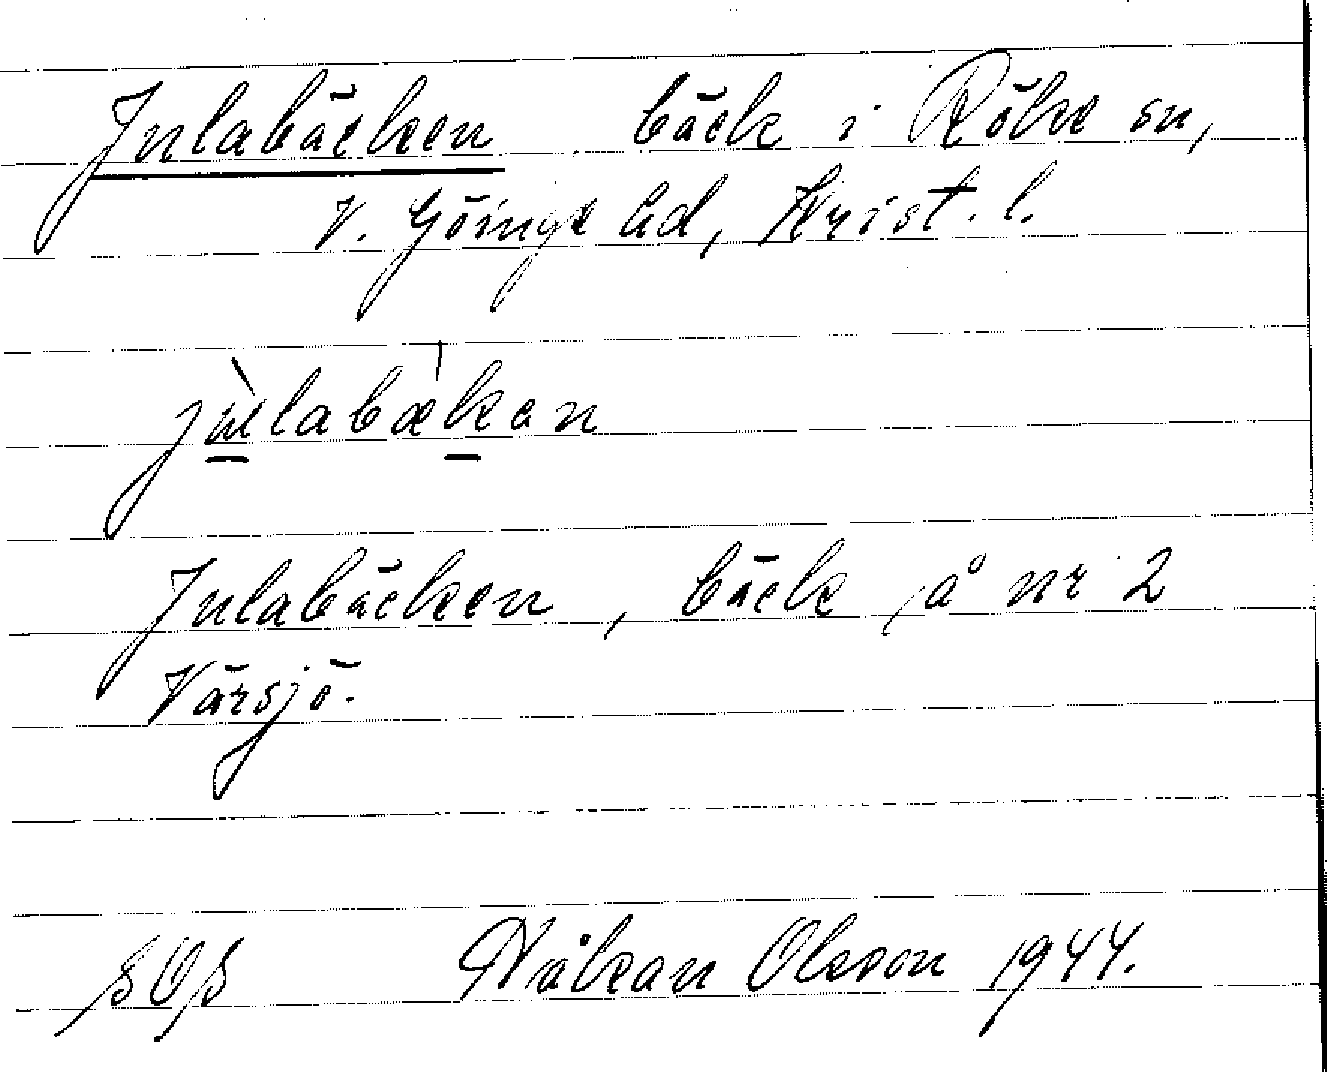 Julabäcken bäck i Röke sn,
V. Göinge hd, Krist. l.
Julabäcken, bäck å nr 2
Värsjö.
Håkan Olsson 1944.